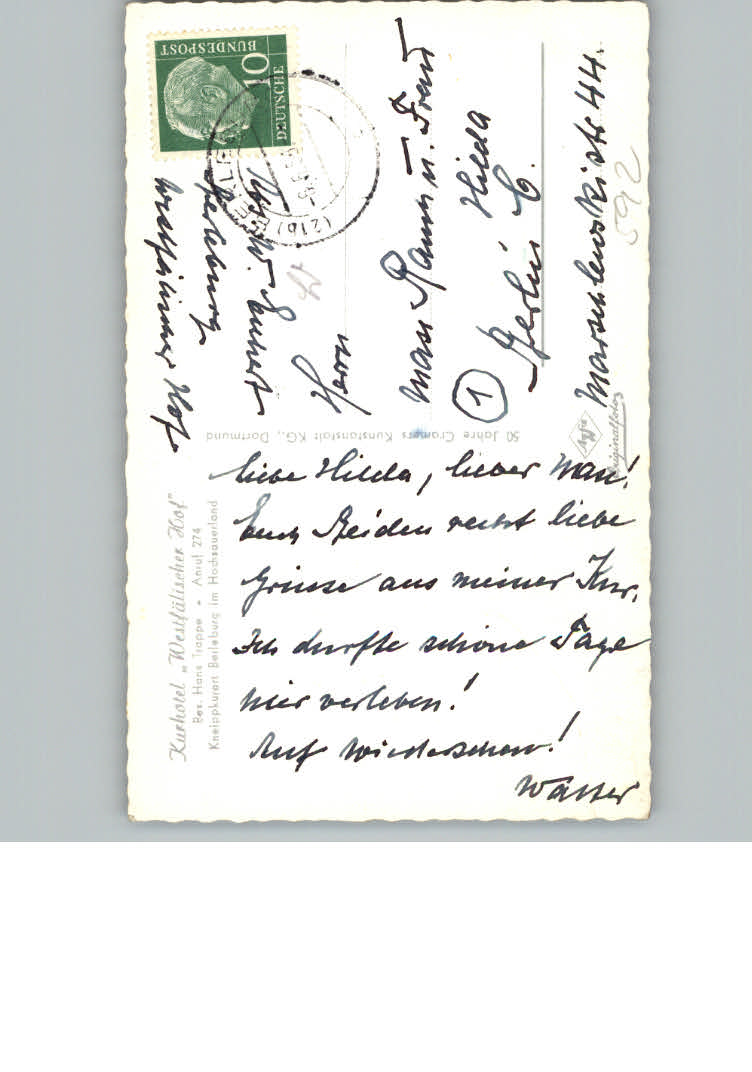 Kurhotel „Westfälischer Hof"
Bes. Hans Trappe • Anruf 274
Kneippkurort Berleburg im Hochsauerland
liebe Hilda, lieber Max!
Euch Beiden recht liebe
Grüsse aus meiner Kur.
Ich durfte schöne Tage
hier verleben!
Auf Wiedersehen!
Walter
50 Jahre Cramers Kunstanstalt KG., Dortmund
DEUTSCHE
BUNDESPOST
10
(21b) BERLEBURG
Abs. W. Emmert
Berleburg
Westfälischer Hof
Herrn
Max Ramm u. Frau
Hilda
1
Berlin C.
Marchlewskistr. 44.
592
Agfa
Originalfoto